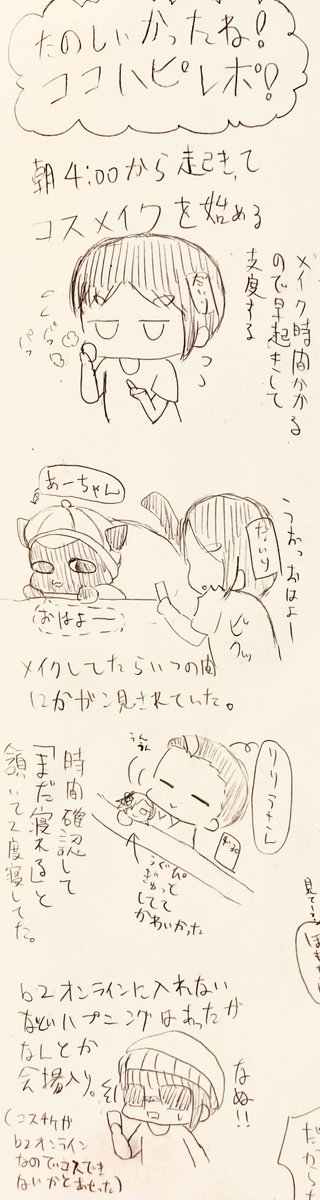 たのしぃかったね！
ココハピレポ！
朝4:00から起きて
コスメイクを始める
メイク時間かかる
ので早起きして
支度する
だいり
ぱっ
あーちゃん
おはよー
うおっおはよー
だいり
ビクッ
メイクしてたらいつの間
にかガン見されていた。
リリうさん
うんうん
4:30
時間確認して
「まだ寝れる」と
頷いて2度寝してた。
ぎゅっと
しててかわいかった
b2オンラインに入れない
などハプニングはあったが
なんとか
会場入り。
なぬ!!
(コスチケが
b2オンライン
なのでコスでき
ないかとあせった)
見て
だったか